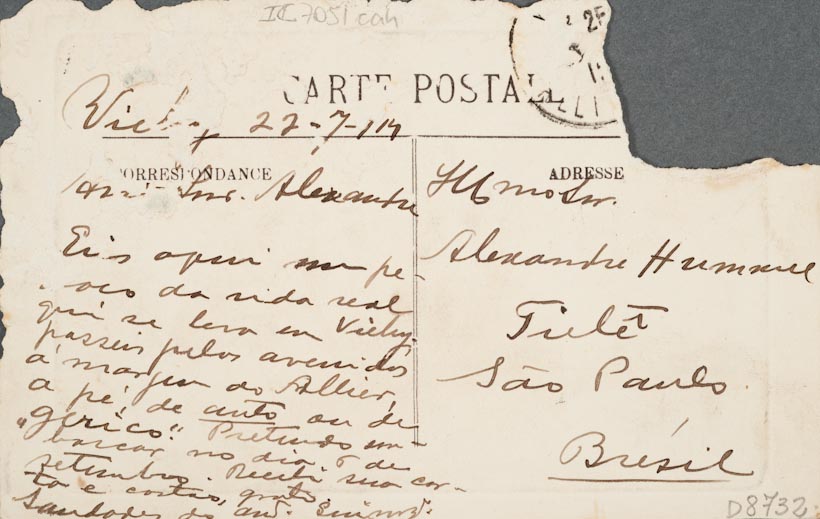 IC 7051 cah
CARTE POSTALE
Vichy 22-7-114
CORRESPONDANCE
Snr. Alexandre
Eis aqui um pe-
daço da vida real
que se leva em Vichy:
passeios pelas avenidas
á margem do Allier,
a pé, de auto ou de
"gerico". Pretendo em-
barcar no dia de
setembro. Recebi sua car-
ta e cartão, grato.
Saudades do am.
ADRESSE
Illmo Sr.
Alexandre
Tietê
São Paulo
Brésil
D8732